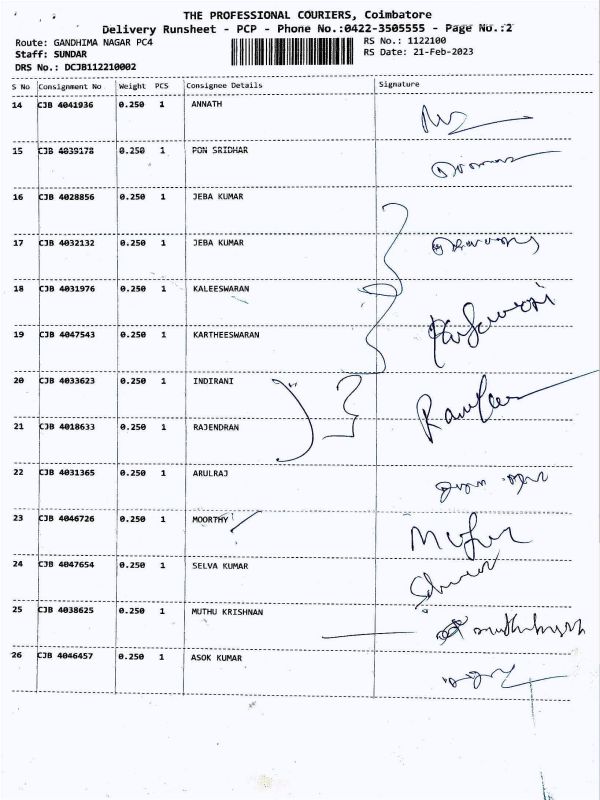 THE PROFESSIONAL COURIERS, Coimbatore
Delivery Runsheet - PCP - Phone No.:0422-3505555 - Page No.:2
Route: GANDHIMA NAGAR PC4 RS No.: 1122100
Staff: SUNDAR RS Date: 21-Feb-2023
DRS No.: DCJB112210002
S No Consignment No Weight PCS Consignee Details Signature
14 CJB 4041936 0.250 1 ANNATH
15 CJB 4039178 0.250 1 PON SRIDHAR
16 CJB 4028856 0.250 1 JEBA KUMAR
17 CJB 4032132 0.250 1 JEBA KUMAR
18 CJB 4031976 0.250 1 KALEESWARAN
19 CJB 4047543 0.250 1 KARTHEESWARAN
20 CJB 4033623 0.250 1 INDIRANI
21 CJB 4018633 0.250 1 RAJENDRAN
22 CJB 4031365 0.250 1 ARULRAJ
23 CJB 4046726 0.250 1 MOORTHY
24 CJB 4047654 0.250 1 SELVA KUMAR
25 CJB 4038625 0.250 1 MUTHU KRISHNAN
26 CJB 4046457 0.250 1 ASOK KUMAR